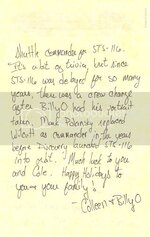 Shuttle commander for STS-116.
It's a bit of trivia, but since
STS-116 was delayed for so many
years, there was a crew change
after Billy O had his portrait
taken. Mark Polansky replaced
Wilcutt as commander in the years
before Discovery launched STS-116
into orbit. Much luck to you
and Cole. Happy Holidays to
you & your family!
- Colleen & Billy O